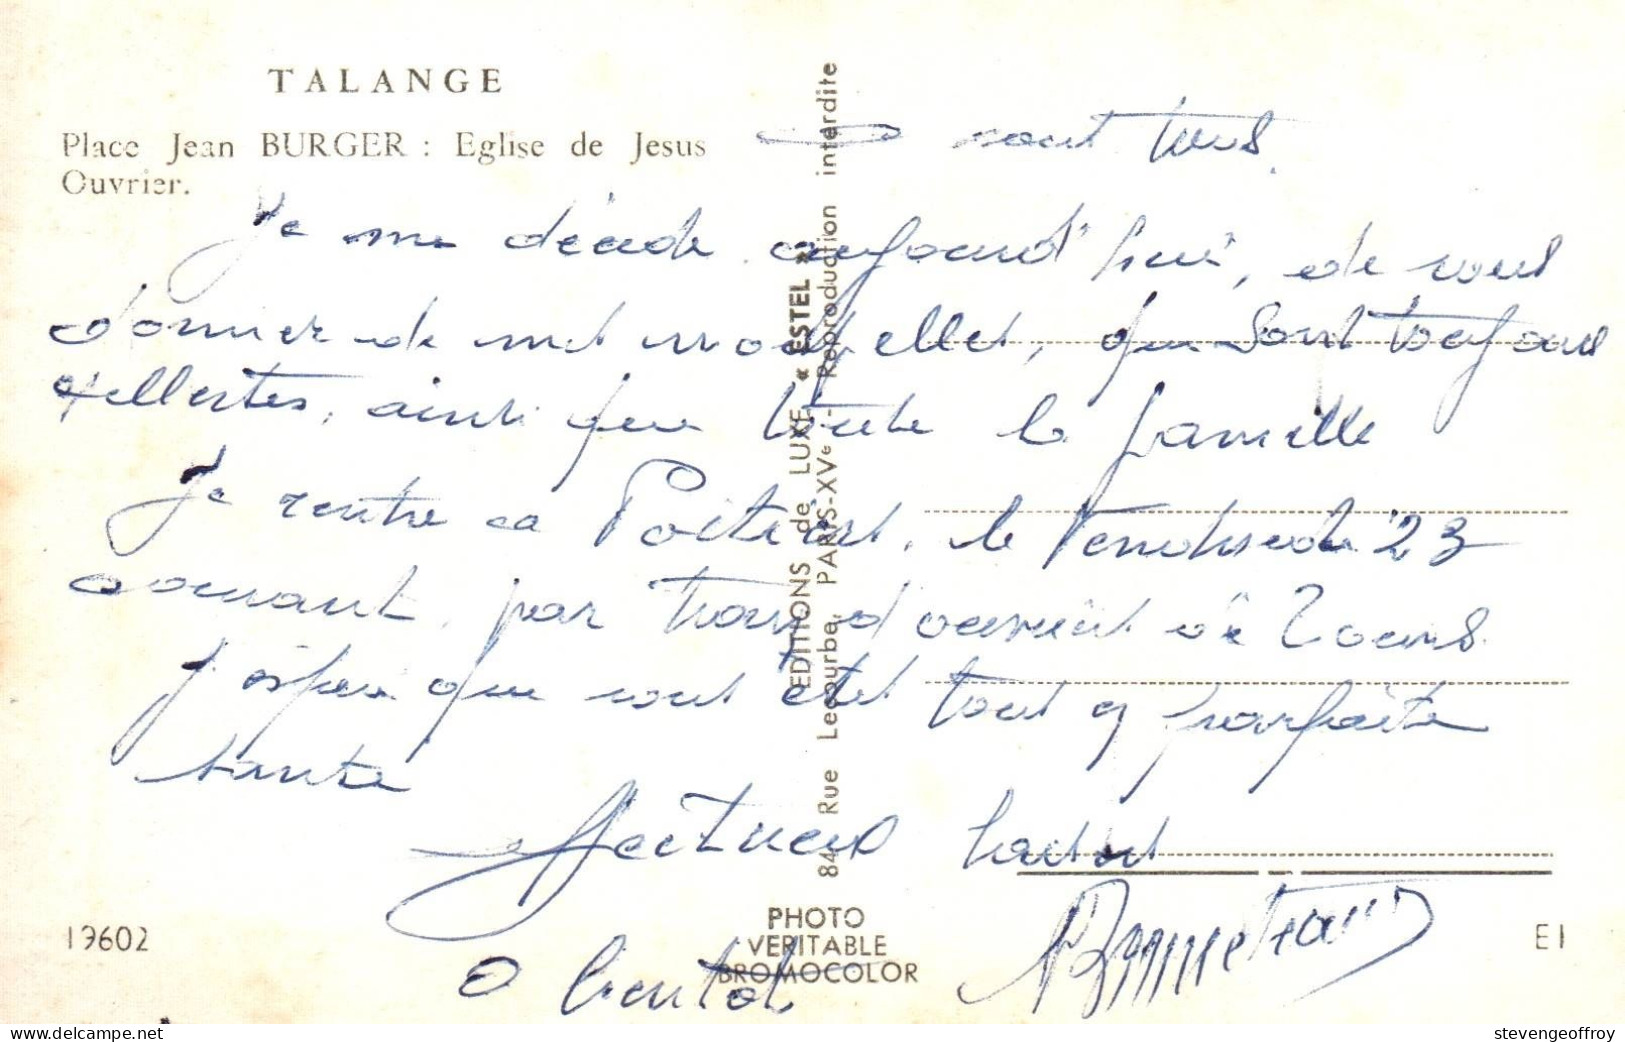 TALANGE
Place Jean BURGER : Eglise de Jesus
Ouvrier.
à vous tous.
Je me décide aujourd'hui, de vous
donner de mes nouvelles, qui sont toujours
exellentes, ainsi que toute la famille
Je rentre a Poitiers, le Vendredi 23
courant, par Tours
J'espere que vous êtes tous en parfaite
sante
Affectueux baisers
A bientot
EDITIONS de LUXE « ESTEL »
84, Rue Lecourbe, PARIS-XVe - Reproduction interdite
PHOTO
VERITABLE
BROMOCOLOR
19602
E1
delcampe.net
stevengeoffroy